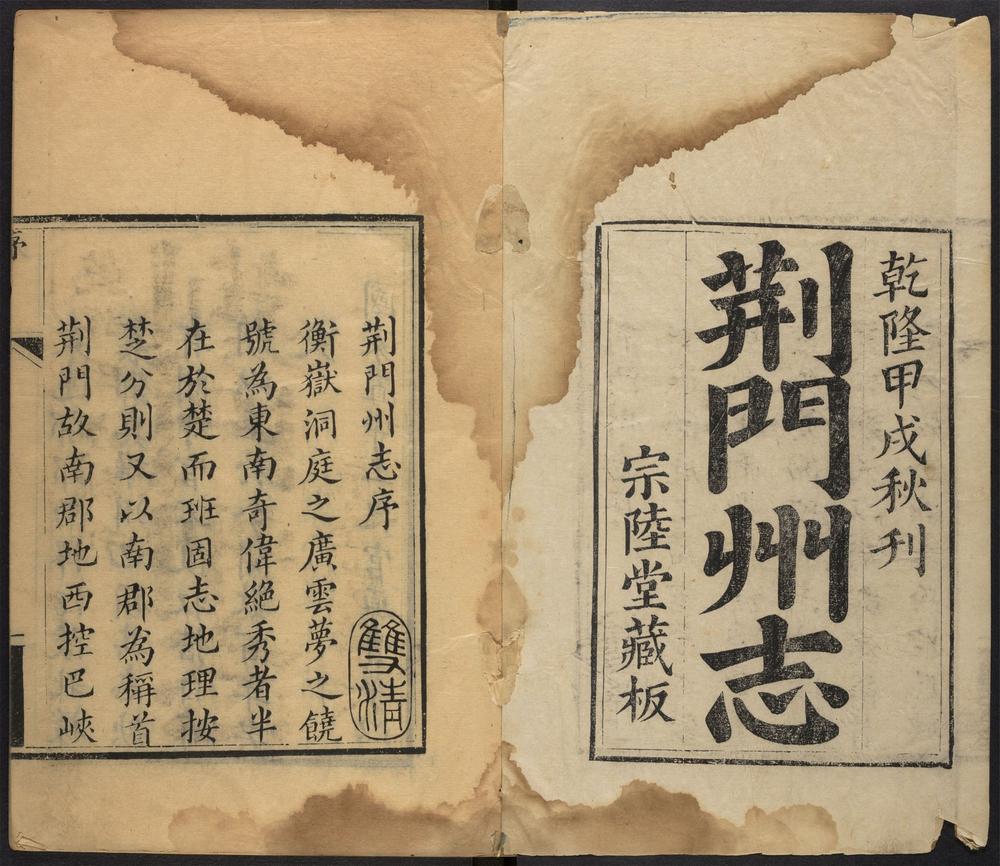 乾隆甲戌秋刊
荆門州志
宗陸堂藏板
荆門州志序
雙清
衡嶽洞庭之廣雲夢之饒
號為東南奇偉絕秀者半
在於楚而班固志地理按
楚分則又以南郡為稱首
荆門故南郡地西控巴峽
序